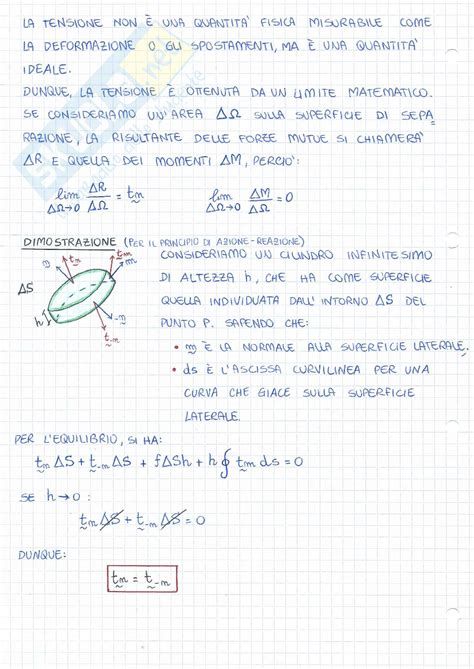 LA TENSIONE NON È UNA QUANTITA' FISICA MISURABILE COME
LA DEFORMAZIONE O GLI SPOSTAMENTI, MA È UNA QUANTITA'
IDEALE.
DUNQUE, LA TENSIONE È OTTENUTA DA UN LIMITE MATEMATICO.
SE CONSIDERIAMO UN'AREA ΔΩ SULLA SUPERFICIE DI SEPA
RAZIONE, LA RISULTANTE DELLE FORZE MUTUE SI CHIAMERA'
ΔR E QUELLA DEI MOMENTI ΔM, PERCIO':
lim ΔΩ→0 ΔR/ΔΩ = tn lim ΔΩ→0 ΔM/ΔΩ = 0
DIMOSTRAZIONE (PER IL PRINCIPIO DI AZIONE-REAZIONE)
CONSIDERIAMO UN CILINDRO INFINITESIMO
DI ALTEZZA h, CHE HA COME SUPERFICIE
QUELLA INDIVIDUATA DALL'INTORNO ΔS DEL
PUNTO P. SAPENDO CHE:
• m È LA NORMALE ALLA SUPERFICIE LATERALE.
• ds È L'ASCISSA CURVILINEA PER UNA
CURVA CHE GIACE SULLA SUPERFICIE
LATERALE.
ΔS
h
PER L'EQUILIBRIO, SI HA:
tn ΔS + t-n ΔS + fΔSh + h ∮ tm ds = 0
SE h→0 :
tn ΔS + t-n ΔS = 0
DUNQUE:
tn = t-n